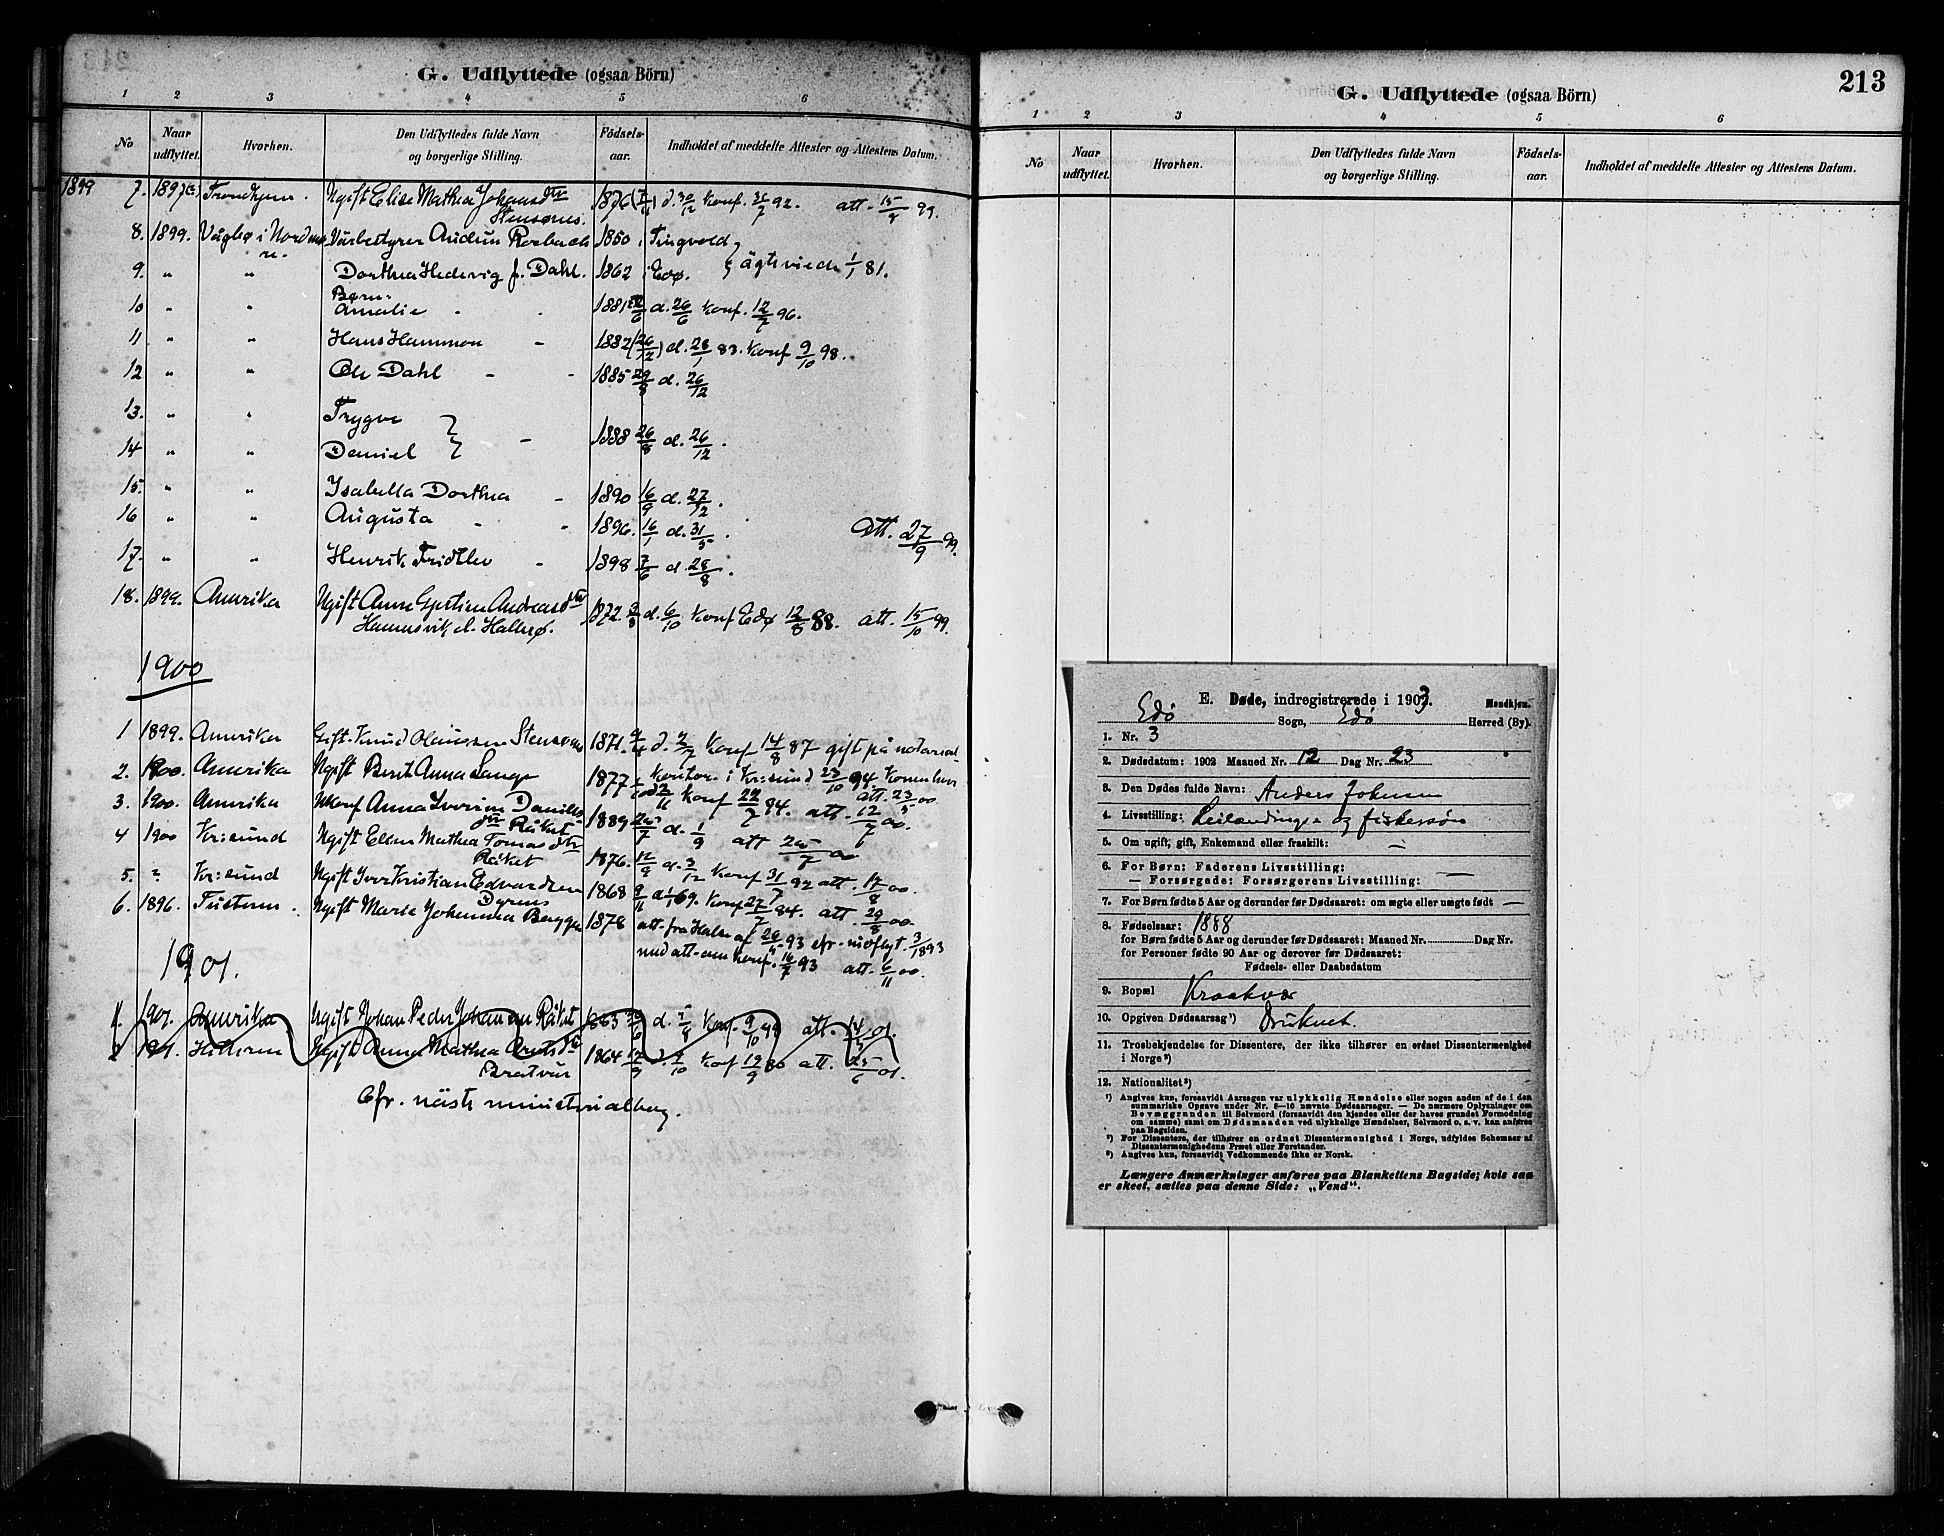 G. Udflyttede (ogsaa Börn)
1 2 3 4 5 6
No Naar udflyttet. Hvorhen. Den Udflyttedes fulde Navn og borgerlige Stilling. Födsels-aar. Indholdet af meddelte Attester og Attestens Datum.
1899 7. 1897 Trondhjem. Ugift Elise Mathea Johansdtr 1876 d. 30/12 Konf. 92. att. 15/8 99.
Stensønes.
8. 1899. Vågbø i Nordmø- Audun Rosbach 1850 i Tingvold
re.
9. " " Dorthea Hedevig f. Dahl. 1862 i Edø. ägteviede 1/1 81.
Børn:
10 " " Amalie - - 1881 d. 26/6 Konf. 12/7 96.
11 " " Hans Hammon - 1882 (26/12) d. 28/1 83. Konf 9/10 98.
12 " " Ole Dahl - - 1885 29/8 d. 26/12
13. " " Trygve
1888 26/8 d. 26/12.
14 " " Daniel
15. " " Isabella Dorthea - 1890 16/9 d. 27/12.
16 " " Augusta - - 1896. 16/1 d. 31/5 Att. 27/9 99.
17. " " Henrik Fridtlev - 1898 7/6 d. 28/8.
18. 1899. Amerika Ugift Anne Gjertine Andreasdtr 1872. 3/8 d. 6/10 Konf Edø 12/8 88. att. 15/10 99.
Hammesvik el. Hallesø.
1900
1 1899. Amerika Gift. Knud Olaussen Stensønes 1871. d. 2/7 Konf 14/8 87 gift på notarial-
2. 1900. Amerika Ugift Berit Anna Lange 1877 kontor i Kr:sund 23/10 94.
Konf 22/7 94. att. 23/5 00
3. 1900. Amerika Ukonf Anna Iverine Daniels- 1889 d. 1/9 att. 12/7 00.
dtr Råket
4 1900 Kr:sund Ugift Ellen Mathea Tomasdtr 1876. 12/9 d. 3/12 Konf 31/7 92 att. 17/8 00.
Råket
5. " Kr:sund Ugift Iver Kristian Edvardsen 1868 9/11 69. Konf 27/7 84. att 29/8 00.
Dyrnes
6. 1896. Tustern. Ugift Marie Johanna Berggren 1878 att. fra Halse af 26/4 93 cfr. indflyt. 3/1893
med att. om Konf. 16/7 93 att. 6/11 00.
1901.
1. 1901. Amerika Ugift Johan Peder Johansen Råket 1885 d. Konf. 9/10 99 att. 14/5 01.
2 1901. Hitteren Ugift Anna Mathea Arntsdtr 1864 17/9 d. 2/10 Konf 19/9 80 att. 25/6 01.
Bratvær
Cfr. näste ministerialbog.
213
G. Udflyttede (ogsaa Börn)
1 2 3 4 5 6
No Naar udflyttet. Hvorhen. Den Udflyttedes fulde Navn og borgerlige Stilling. Födsels-aar. Indholdet af meddelte Attester og Attestens Datum.
E. Døde, indregistrerede i 1903. Mandkjøn.
Edø Sogn, Edø Herred (By).
1. Nr. 3
2. Dødsdatum: 1902 Maaned Nr. 12 Dag Nr. 23
3. Den Dødes fulde Navn: Anders Johnsen
4. Livsstilling: Leilændinge og fiskersøn
5. Om ugift, gift, Enkemand eller fraskilt: —
6. For Børn: Faderens Livsstilling:
— Forsørgede: Forsørgerens Livsstilling: —
7. For Børn fødte 5 Aar og derunder før Dødsaaret: om ægte eller uægte født —
8. Fødselsaar: 1888
for Børn fødte 5 Aar og derunder før Dødsaaret: Maaned Nr. Dag Nr.
for Personer fødte 90 Aar og derover før Dødsaaret:
Fødsels- eller Daabsdatum
9. Bopæl Kraakvær
10. Opgiven Dødsaarsag¹) Druknet.
11. Trosbekjendelse for Dissentere, der ikke tilhører en ordnet Dissentermenighed
i Norge²)
12. Nationalitet³)
¹) Angives kun, forsaavidt Aarsagen var ulykkelig Hændelse eller nogen anden af de i den
summariske Opgave under Nr. 8—10 nævnte Dødsaarsager. — De nærmere Oplysninger om
Bevæggrunden til Selvmord (forsaavidt den kjendes eller der haves grundet Formodning
om samme) samt om Dødsmaaden ved ulykkelige Hændelser, Selvmord o. s. v. kan anføres
paa Bagsiden.
²) For Dissentere, der tilhører en ordnet Dissentermenighed i Norge, udfyldes Schemaer af
Dissentermenighedens Præst eller Forstander.
³) Angives kun, forsaavidt Vedkommende ikke er Norsk.
Længere Anmærkninger anføres paa Blankettens Bagside; hvis saa
er skeet, sættes paa denne Side: „Vend".